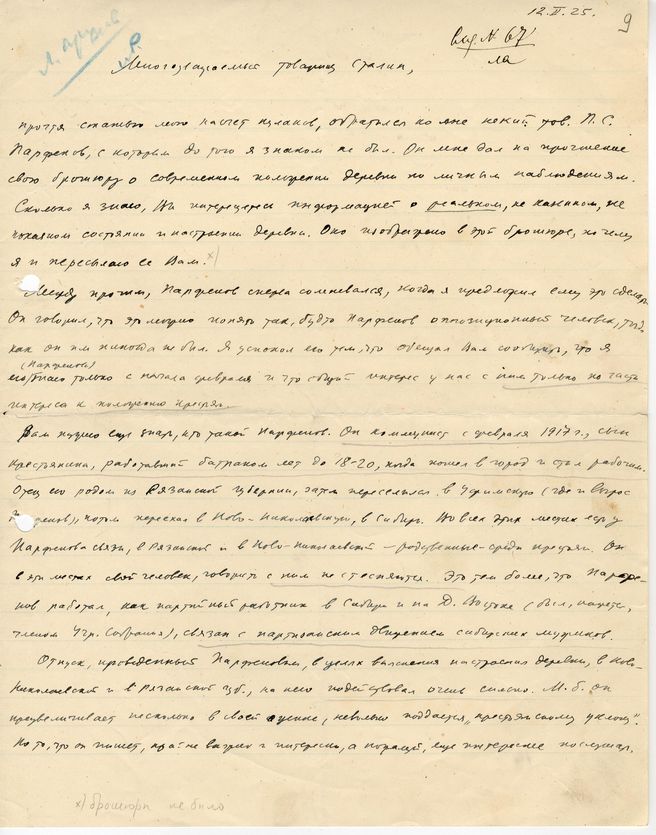 12.II.25.
9
Л. архив
вхд. N 67
Многоуважаемый товарищ Сталин,
прочтя статью мою насчет кулаков, обратился ко мне некий тов. П.С.
Парфенов, с которым до того я знаком не был. Он мне дал на прочтение
свою брошюру о современном положении деревни по личным наблюдениям.
Сколько я знаю, Вы интересуетесь информацией о реальном, не казенном, не
состоянии и настроении деревни. Оно изображено в этой брошюре, почему
я и пересылаю ее Вам. х)
Между прочим, Парфенов сперва сомневался, когда я предложил ему это сделать.
Он говорил, что это можно понять так, будто Парфенов оппозиционный человек, тогда
как он им никогда не был. Я успокоил его тем, что обещал Вам сообщить, что я
(Парфенова)
его знаю только с начала февраля и что общий интерес у нас с ним только по части
интереса к положению крестьян.
Вам нужно еще знать, кто такой Парфенов. Он коммунист с февраля 1917 г., сын
крестьянина, работавший батраком лет до 18-20, когда пошел в город и стал рабочим.
Отец его родом из Рязанской губернии, затем переселился в Уфимскую (где и вырос
Парфенов), потом переехал в Ново-Николаевскую, в Сибирь. Во всех этих местах есть у
Парфенова связи, в Рязанской и в Ново-Николаевской – родственные – среди крестьян. Он
в эти местах свой человек, говорить с ним не стесняются. Это тем более, что Парфе-
нов работал, как партийный работник в Сибири и на Д. Востоке (был, кажется,
членом Учр. Собрания), связан с партизанским движением сибирских мужиков.
Отпуск, проведенный Парфеновым, в целях выяснения настроения деревни, в Ново-
Николаевской и в Рязанской губ., на него подействовал очень сильно. М.б. он
преувеличивает несколько в своей оценке, невольно поддается „крестьянскому уклону“.
Но то, что он пишет, крайне важно и интересно, а пожалуй, еще интереснее послушать.
х) брошюры не было